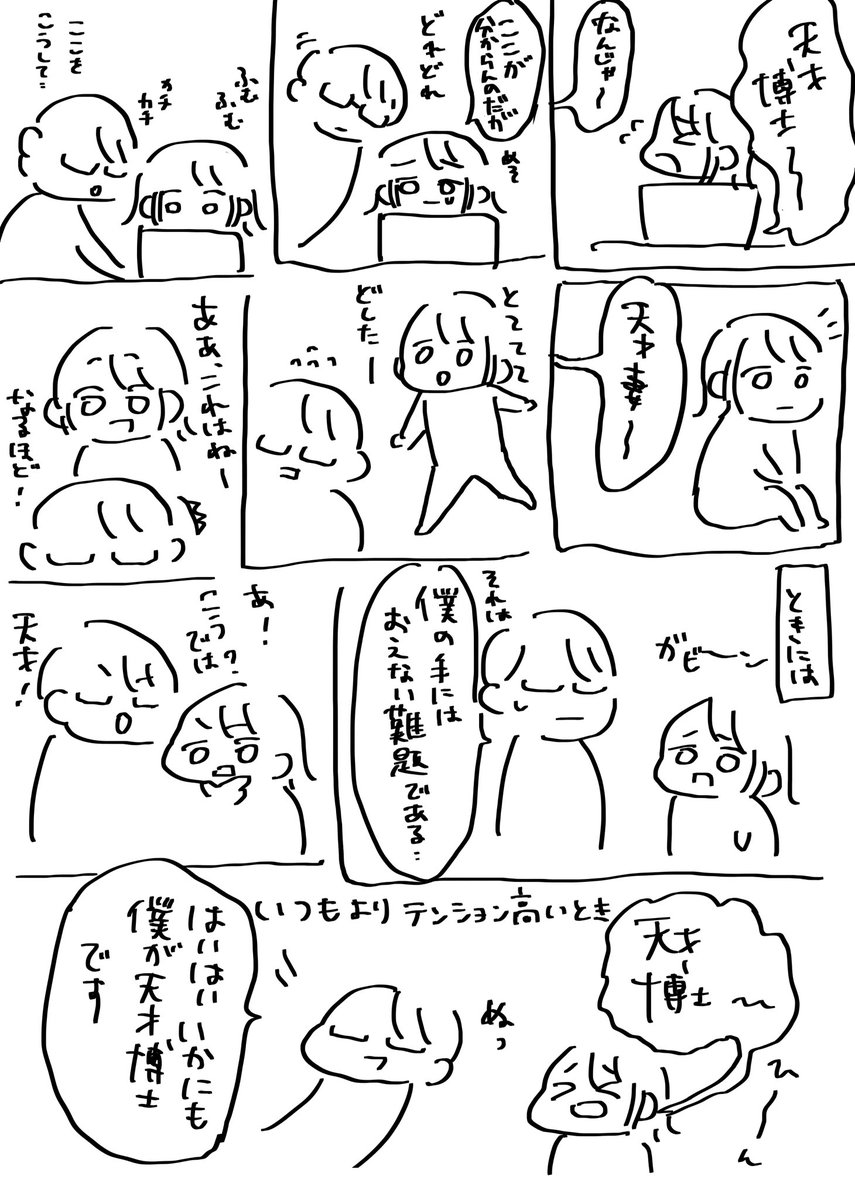 天才
博士〜
なんじゃ〜
ここが
分からんのだが
どれどれ
めそ
ふむ
ふむ
カチ
カチ
ここを
こうして…
天才妻〜
とててて
どしたー
ああ、これはねー
なるほど！
ときには
ガビーン
それは
僕の手には
おえない難題である…
あ！
こう？
では
天才！
いつもよりテンション高いとき
天才
博士〜
ひ〜ん
ぬっ
はいはいいかにも
僕が天才博士
です